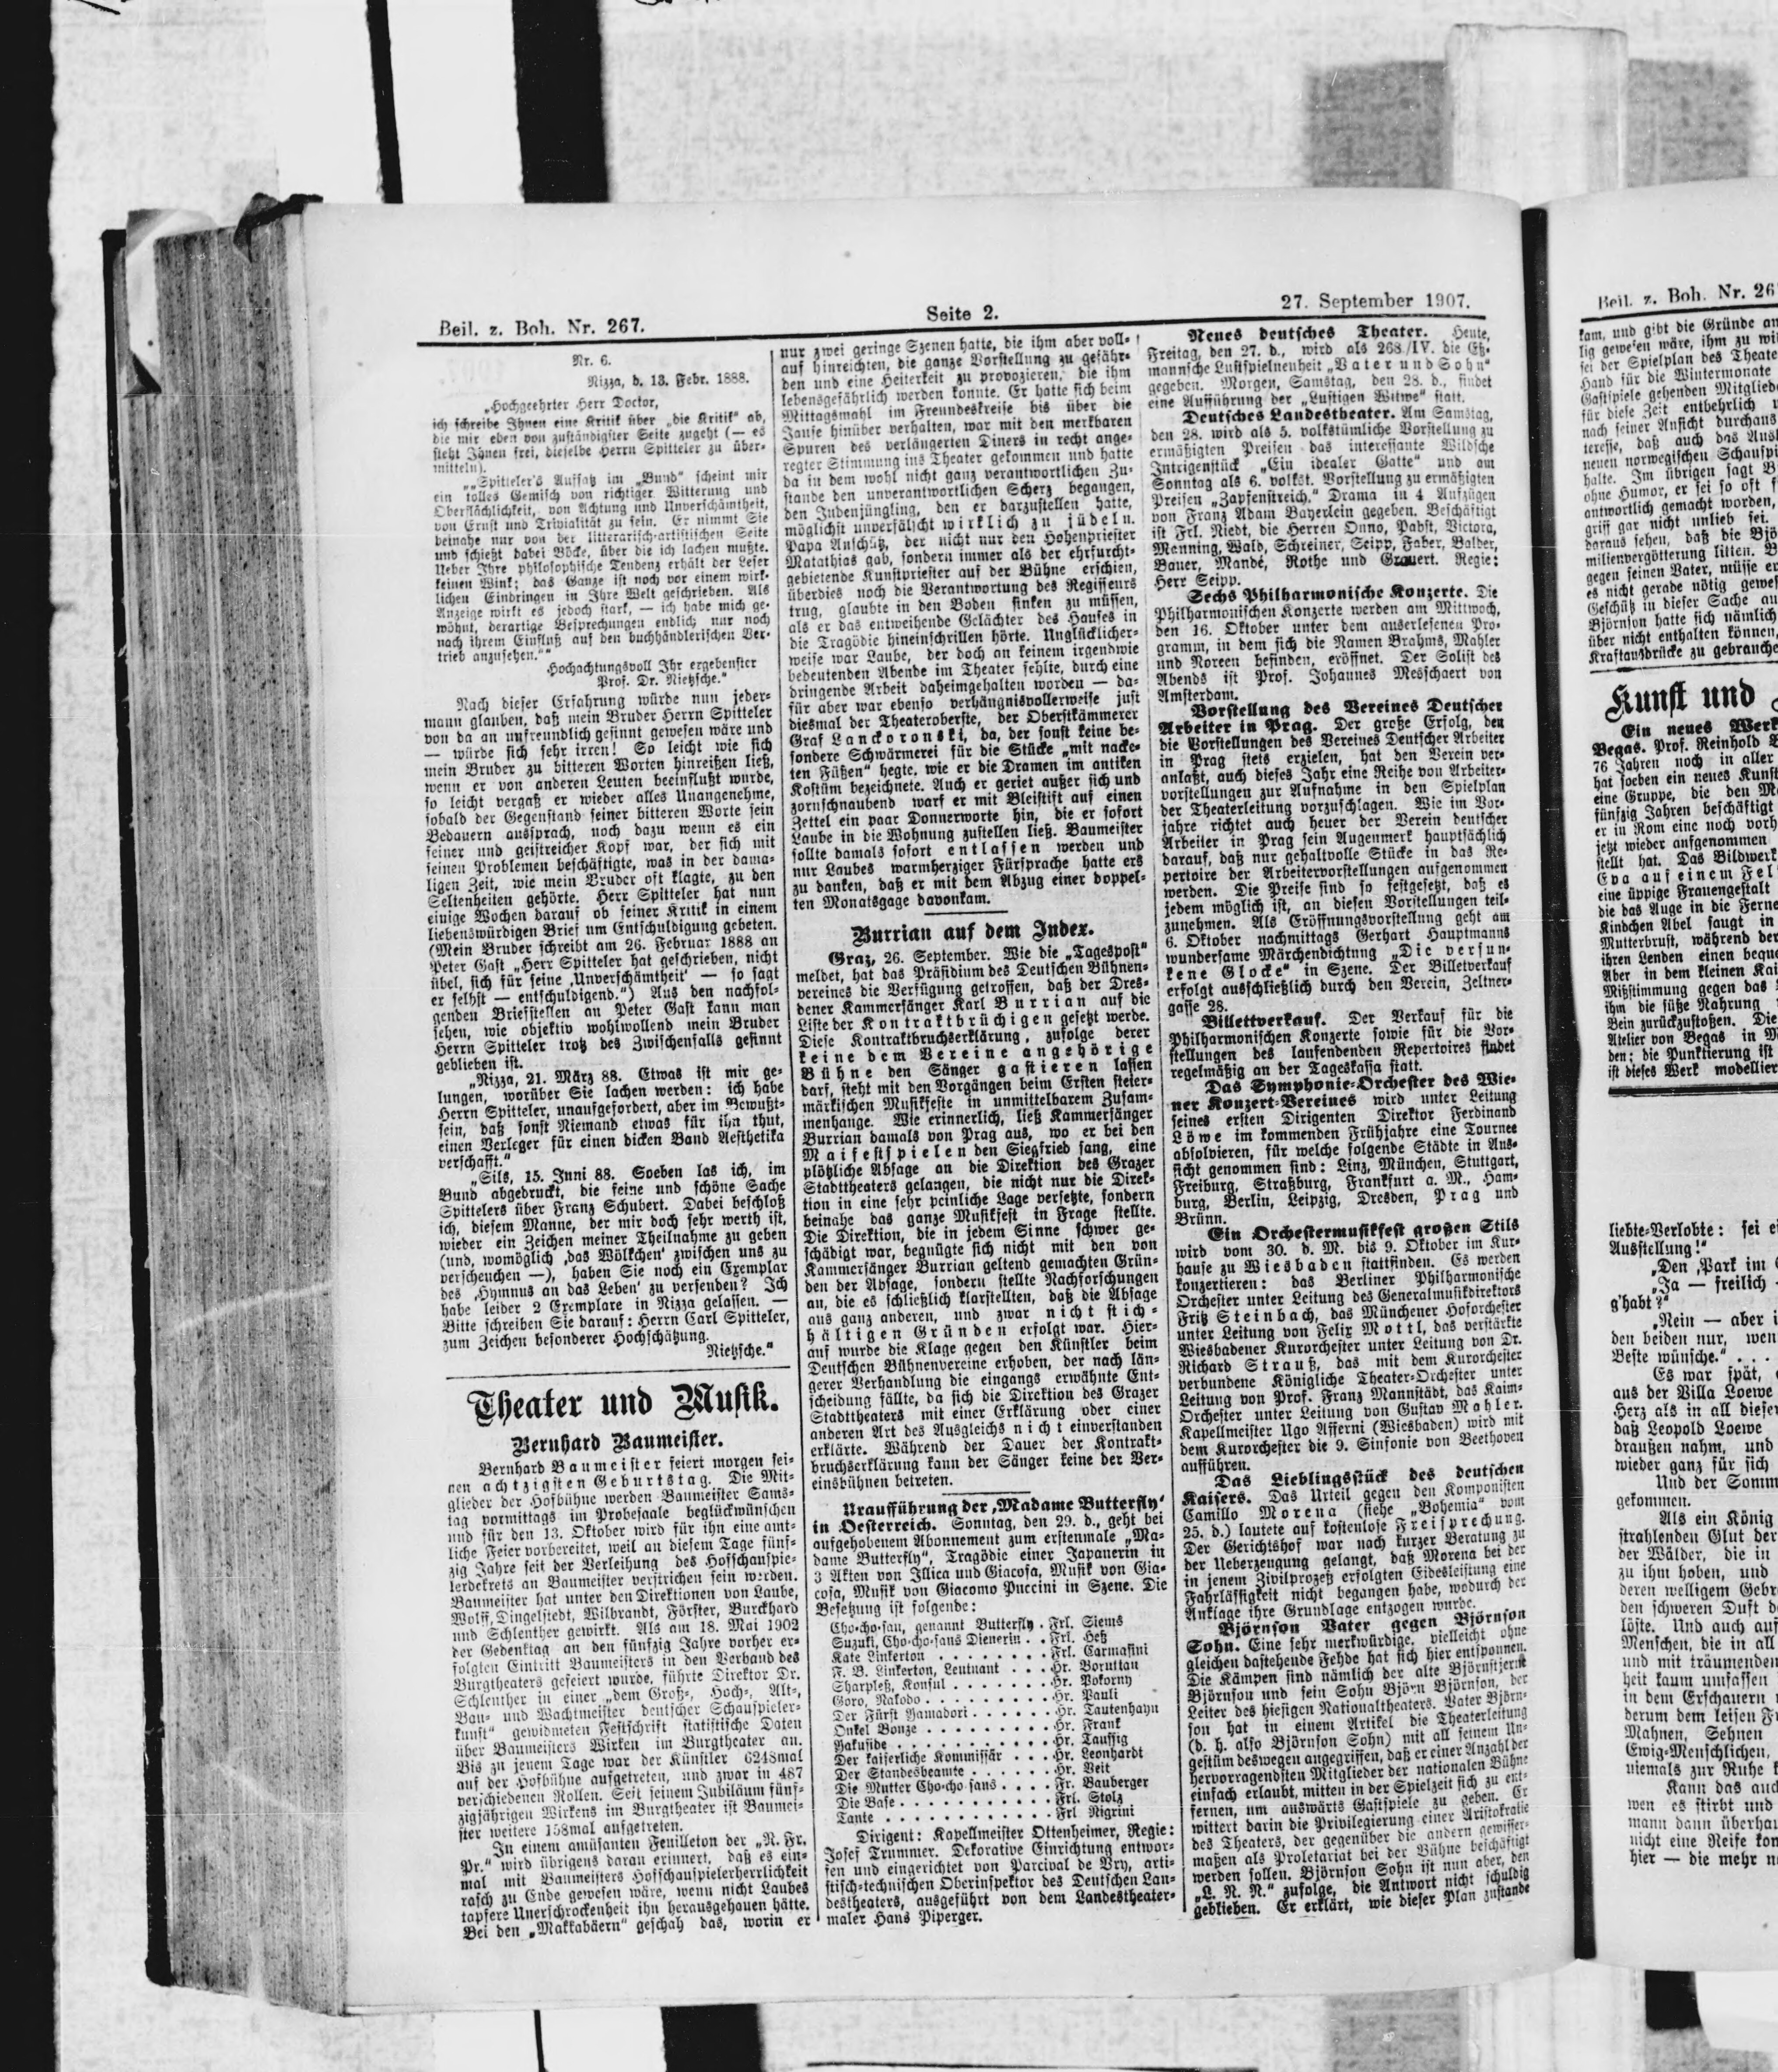 Beil. z. Boh. Nr. 267.
Seite 2.
27. September 1907.
Nr. 6.
Nizza, d. 13. Febr. 1888.
„Hochgeehrter Herr Doctor,
ich schreibe Ihnen eine Kritik über „die Kritik“ ab,
die mir eben von zuständigster Seite zugeht (— es
steht Ihnen frei, dieselbe Herrn Spitteler zu über-
mitteln).
„„Spitteler's Aufsatz im „Bund“ scheint mir
ein tolles Gemisch von richtiger Witterung und
Oberflächlichkeit, von Achtung und Unverschämtheit,
von Ernst und Trivialität zu sein. Er nimmt Sie
beinahe nur von der litterarisch-artistischen Seite
und schießt dabei Böcke, über die ich lachen mußte.
Ueber Ihre philosophische Tendenz erhält der Leser
keinen Wink; das Ganze ist noch vor einem wirk-
lichen Eindringen in Ihre Welt geschrieben. Als
Anzeige wirkt es jedoch stark, — ich habe mich ge-
wöhnt, derartige Besprechungen endlich nur noch
nach ihrem Einfluß auf den buchhändlerischen Ver-
trieb anzusehen.““
Hochachtungsvoll Ihr ergebenster
Prof. Dr. Nietzsche.“
Nach dieser Erfahrung würde nun jeder-
mann glauben, daß mein Bruder Herrn Spitteler
von da an unfreundlich gesinnt gewesen wäre und
— würde sich sehr irren! So leicht wie sich
mein Bruder zu bitteren Worten hinreißen ließ,
wenn er von anderen Leuten beeinflußt wurde,
so leicht vergaß er wieder alles Unangenehme,
sobald der Gegenstand seiner bitteren Worte sein
Bedauern aussprach, noch dazu wenn es ein
feiner und geistreicher Kopf war, der sich mit
seinen Problemen beschäftigte, was in der dama-
ligen Zeit, wie mein Bruder oft klagte, zu den
Seltenheiten gehörte. Herr Spitteler hat nun
einige Wochen darauf ob seiner Kritik in einem
liebenswürdigen Brief um Entschuldigung gebeten.
(Mein Bruder schreibt am 26. Februar 1888 an
Peter Gast „Herr Spitteler hat geschrieben, nicht
übel, sich für seine ‚Unverschämtheit‘ — so sagt
er selbst — entschuldigend.“) Aus den nachfol-
genden Briefstellen an Peter Gast kann man
sehen, wie objektiv wohlwollend mein Bruder
Herrn Spitteler trotz des Zwischenfalls gesinnt
geblieben ist.
„Nizza, 21. März 88. Etwas ist mir ge-
lungen, worüber Sie lachen werden: ich habe
Herrn Spitteler, unaufgefordert, aber im Bewußt-
sein, daß sonst Niemand etwas für ihn thut,
einen Verleger für einen dicken Band Aesthetika
verschafft.“
„Sils, 15. Juni 88. Soeben las ich, im
Bund abgedruckt, die feine und schöne Sache
Spittelers über Franz Schubert. Dabei beschloß
ich, diesem Manne, der mir doch sehr werth ist,
wieder ein Zeichen meiner Theilnahme zu geben
(und, womöglich ‚das Wölkchen‘ zwischen uns zu
verscheuchen —), haben Sie noch ein Exemplar
des ‚Hymnus an das Leben‘ zu versenden? Ich
habe leider 2 Exemplare in Nizza gelassen. —
Bitte schreiben Sie darauf: Herrn Carl Spitteler,
zum Zeichen besonderer Hochschätzung.
Nietzsche.“
Theater und Musik.
Bernhard Baumeister.
Bernhard Baumeister feiert morgen sei-
nen achtzigsten Geburtstag. Die Mit-
glieder der Hofbühne werden Baumeister Sams-
tag vormittags im Probesaale beglückwünschen
und für den 13. Oktober wird für ihn eine amt-
liche Feier vorbereitet, weil an diesem Tage fünf-
zig Jahre seit der Verleihung des Hofschauspie-
lerdekrets an Baumeister verstrichen sein werden.
Baumeister hat unter den Direktionen von Laube,
Wolff, Dingelstedt, Wilbrandt, Förster, Burckhard
und Schlenther gewirkt. Als am 18. Mai 1902
der Gedenktag an den fünfzig Jahre vorher er-
folgten Eintritt Baumeisters in den Verband des
Burgtheaters gefeiert wurde, führte Direktor Dr.
Schlenther in einer „dem Groß-, Hoch-, Alt-,
Bau- und Wachtmeister deutscher Schauspieler-
kunst“ gewidmeten Festschrift statistische Daten
über Baumeisters Wirken im Burgtheater an.
Bis zu jenem Tage war der Künstler 6248mal
auf der Hofbühne aufgetreten, und zwar in 487
verschiedenen Rollen. Seit seinem Jubiläum fünf-
zigjährigen Wirkens im Burgtheater ist Baumei-
ster weitere 158mal aufgetreten.
In einem amüsanten Feuilleton der „N. Fr.
Pr.“ wird übrigens daran erinnert, daß es ein-
mal mit Baumeisters Hofschauspielerherrlichkeit
rasch zu Ende gewesen wäre, wenn nicht Laubes
tapfere Unerschrockenheit ihn herausgehauen hätte.
Bei den „Makkabäern“ geschah das, worin er
nur zwei geringe Szenen hatte, die ihm aber voll-
auf hinreichten, die ganze Vorstellung zu gefähr-
den und eine Heiterkeit zu provozieren, die ihm
lebensgefährlich werden konnte. Er hatte sich beim
Mittagsmahl im Freundeskreise bis über die
Jause hinüber verhalten, war mit den merkbaren
Spuren des verlängerten Diners in recht ange-
regter Stimmung ins Theater gekommen und hatte
da in dem wohl nicht ganz verantwortlichen Zu-
stande den unverantwortlichen Scherz begangen,
den Judenjüngling, den er darzustellen hatte,
möglichst unverfälscht wirklich zu jüdeln.
Papa Anschütz, der nicht nur den Hohenpriester
Matathias gab, sondern immer als der ehrfurcht-
gebietende Kunstpriester auf der Bühne erschien,
überdies noch die Verantwortung des Regisseurs
trug, glaubte in den Boden sinken zu müssen,
als er das entweihende Gelächter des Hauses in
die Tragödie hineinschrillen hörte. Unglücklicher-
weise war Laube, der doch an keinem irgendwie
bedeutenden Abende im Theater fehlte, durch eine
dringende Arbeit daheimgehalten worden — da-
für aber war ebenso verhängnisvollerweise just
diesmal der Theateroberste, der Oberstkämmerer
Graf Lanckoronski, da, der sonst keine be-
sondere Schwärmerei für die Stücke „mit nacke-
ten Füßen“ hegte, wie er die Dramen im antiken
Kostüm bezeichnete. Auch er geriet außer sich und
zornschnaubend warf er mit Bleistift auf einen
Zettel ein paar Donnerworte hin, die er sofort
Laube in die Wohnung zustellen ließ. Baumeister
sollte damals sofort entlassen werden und
nur Laubes warmherziger Fürsprache hatte ers
zu danken, daß er mit dem Abzug einer doppel-
ten Monatsgage davonkam.
Burrian auf dem Index.
Graz, 26. September. Wie die „Tagespost“
meldet, hat das Präsidium des Deutschen Bühnen-
vereines die Verfügung getroffen, daß der Dres-
dener Kammersänger Karl Burrian auf die
Liste der Kontraktbrüchigen gesetzt werde.
Diese Kontraktbruchserklärung, zufolge derer
keine dem Vereine angehörige
Bühne den Sänger gastieren lassen
darf, steht mit den Vorgängen beim Ersten steier-
märkischen Musikfeste in unmittelbarem Zusam-
menhange. Wie erinnerlich, ließ Kammersänger
Burrian damals von Prag aus, wo er bei den
Maifestspielen den Siegfried sang, eine
plötzliche Absage an die Direktion des Grazer
Stadttheaters gelangen, die nicht nur die Direk-
tion in eine sehr peinliche Lage versetzte, sondern
beinahe das ganze Musikfest in Frage stellte.
Die Direktion, die in jedem Sinne schwer ge-
schädigt war, begnügte sich nicht mit den von
Kammersänger Burrian geltend gemachten Grün-
den der Absage, sondern stellte Nachforschungen
an, die es schließlich klarstellten, daß die Absage
aus ganz anderen, und zwar nicht stich-
hältigen Gründen erfolgt war. Hier-
auf wurde die Klage gegen den Künstler beim
Deutschen Bühnenvereine erhoben, der nach län-
gerer Verhandlung die eingangs erwähnte Ent-
scheidung fällte, da sich die Direktion des Grazer
Stadttheaters mit einer Erklärung oder einer
anderen Art des Ausgleichs nicht einverstanden
erklärte. Während der Dauer der Kontrakt-
bruchserklärung kann der Sänger keine der Ver-
einsbühnen betreten.
Uraufführung der ‚Madame Butterfly‘
in Oesterreich. Sonntag, den 29. d., geht bei
aufgehobenem Abonnement zum erstenmale „Ma-
dame Butterfly“, Tragödie einer Japanerin in
3 Akten von Illica und Giacosa, Musik von Gia-
cosa, Musik von Giacomo Puccini in Szene. Die
Besetzung ist folgende:
Cho-cho-san, genannt Butterfly . Frl. Siems
Suzuki, Cho-cho-sans Dienerin . . Frl. Heß
Kate Linkerton . . . . . . . . Frl. Carmasini
F. B. Linkerton, Leutnant . . . Hr. Boruttau
Sharpleß, Konsul . . . . . . . Hr. Pokorny
Goro, Nakodo . . . . . . . . . Hr. Pauli
Der Fürst Yamadori . . . . . . Hr. Tautenhayn
Onkel Bonze . . . . . . . . . Hr. Frank
Yakuside . . . . . . . . . . . Hr. Taussig
Der kaiserliche Kommissär . . . Hr. Leonhardt
Der Standesbeamte . . . . . . Hr. Veit
Die Mutter Cho-cho-sans . . . . Fr. Bauberger
Die Base . . . . . . . . . . . Frl. Stolz
Tante . . . . . . . . . . . . Frl Nigrini
Dirigent: Kapellmeister Ottenheimer, Regie:
Josef Trummer. Dekorative Einrichtung entwor-
fen und eingerichtet von Parcival de Vry, arti-
stisch-technischen Oberinspektor des Deutschen Lan-
destheaters, ausgeführt von dem Landestheater-
maler Hans Piperger.
Neues deutsches Theater. Heute,
Freitag, den 27. d., wird als 268./IV. die Eß-
mannsche Lustspielneuheit „Vater und Sohn“
gegeben. Morgen, Samstag, den 28. d., findet
eine Aufführung der „Lustigen Witwe“ statt.
Deutsches Landestheater. Am Samstag,
den 28. wird als 5. volkstümliche Vorstellung zu
ermäßigten Preisen das interessante Wildsche
Intrigenstück „Ein idealer Gatte“ und am
Sonntag als 6. volkst. Vorstellung zu ermäßigten
Preisen „Zapfenstreich.“ Drama in 4 Aufzügen
von Franz Adam Bayerlein gegeben. Beschäftigt
ist Frl. Niedt, die Herren Onno, Pabst, Victora,
Manning, Wald, Schreiner, Seipp, Faber, Balder,
Bauer, Mandé, Rothe und Grauert. Regie:
Herr Seipp.
Sechs Philharmonische Konzerte. Die
Philharmonischen Konzerte werden am Mittwoch,
den 16. Oktober unter dem auserlesenen Pro-
gramm, in dem sich die Namen Brahms, Mahler
und Noreen befinden, eröffnet. Der Solist des
Abends ist Prof. Johannes Messchaert von
Amsterdam.
Vorstellung des Vereines Deutscher
Arbeiter in Prag. Der große Erfolg, den
die Vorstellungen des Vereines Deutscher Arbeiter
in Prag stets erzielen, hat den Verein ver-
anlaßt, auch dieses Jahr eine Reihe von Arbeiter-
vorstellungen zur Aufnahme in den Spielplan
der Theaterleitung vorzuschlagen. Wie im Vor-
jahre richtet auch heuer der Verein deutscher
Arbeiter in Prag sein Augenmerk hauptsächlich
darauf, daß nur gehaltvolle Stücke in das Re-
pertoire der Arbeitervorstellungen aufgenommen
werden. Die Preise sind so festgesetzt, daß es
jedem möglich ist, an diesen Vorstellungen teil-
zunehmen. Als Eröffnungsvorstellung geht am
6. Oktober nachmittags Gerhart Hauptmanns
wundersame Märchendichtung „Die versun-
kene Glocke“ in Szene. Der Billetverkauf
erfolgt ausschließlich durch den Verein, Zeltner-
gasse 28.
Billettverkauf. Der Verkauf für die
Philharmonischen Konzerte sowie für die Vor-
stellungen des laufendenden Repertoires findet
regelmäßig an der Tageskassa statt.
Das Symphonie-Orchester des Wie-
ner Konzert-Vereines wird unter Leitung
seines ersten Dirigenten Direktor Ferdinand
Löwe im kommenden Frühjahre eine Tournee
absolvieren, für welche folgende Städte in Aus-
sicht genommen sind: Linz, München, Stuttgart,
Freiburg, Straßburg, Frankfurt a. M., Ham-
burg, Berlin, Leipzig, Dresden, Prag und
Brünn.
Ein Orchestermusikfest großen Stils
wird vom 30. d. M. bis 9. Oktober im Kur-
hause zu Wiesbaden stattfinden. Es werden
konzertieren: das Berliner Philharmonische
Orchester unter Leitung des Generalmusikdirektors
Fritz Steinbach, das Münchener Hoforchester
unter Leitung von Felix Mottl, das verstärkte
Wiesbadener Kurorchester unter Leitung von Dr.
Richard Strauß, das mit dem Kurorchester
verbundene Königliche Theater-Orchester unter
Leitung von Prof. Franz Mannstädt, das Kaim-
Orchester unter Leitung von Gustav Mahler.
Kapellmeister Ugo Afferni (Wiesbaden) wird mit
dem Kurorchester die 9. Sinfonie von Beethoven
aufführen.
Das Lieblingsstück des deutschen
Kaisers. Das Urteil gegen den Komponisten
Camillo Morena (siehe „Bohemia“ vom
25. d.) lautete auf kostenlose Freisprechung.
Der Gerichtshof war nach kurzer Beratung zu
der Ueberzeugung gelangt, daß Morena bei der
in jenem Zivilprozeß erfolgten Eidesleistung eine
Fahrlässigkeit nicht begangen habe, wodurch der
Anklage ihre Grundlage entzogen wurde.
Björnson Vater gegen Björnson
Sohn. Eine sehr merkwürdige, vielleicht ohne
gleichen dastehende Fehde hat sich hier entsponnen.
Die Kämpen sind nämlich der alte Björnstjerne
Björnson und sein Sohn Björn Björnson, der
Leiter des hiesigen Nationaltheaters. Vater Björn-
son hat in einem Artikel die Theaterleitung
(d. h. also Björnson Sohn) mit all seinem Un-
gestüm deswegen angegriffen, daß er einer Anzahl der
hervorragendsten Mitglieder der nationalen Bühne
einfach erlaubt, mitten in der Spielzeit sich zu ent-
fernen, um auswärts Gastspiele zu geben. Er
wittert darin die Privilegierung einer Aristokratie
des Theaters, der gegenüber die andern gewisser-
maßen als Proletariat bei der Bühne beschäftigt
werden sollen. Björnson Sohn ist nun aber, den
„L. N. N.“ zufolge, die Antwort nicht schuldig
geblieben. Er erklärt, wie dieser Plan zustande
Beil. z. Boh. Nr. 26
kam, und gibt die Gründe an
lig gewesen wäre, ihm zu wil
sei der Spielplan des Theate
Hand für die Wintermonate
Gastspiele gehenden Mitgliede
für diese Zeit entbehrlich
nach seiner Ansicht durchaus
teresse, daß auch das Ausl
neuen norwegischen Schauspi
halte. Im übrigen sagt B
ohne Humor, er sei so oft
antwortlich gemacht worden,
griff gar nicht unlieb sei.
daraus sehen, daß die Bjö
milienvergötterung litten. B
gegen seinen Vater, müsse er
es nicht gerade nötig gewes
Geschütz in dieser Sache au
Björnson hatte sich nämlich
über nicht enthalten können,
Kraftausdrücke zu gebrauche
Kunst und
Ein neues Werk
Begas. Prof. Reinhold
76 Jahren noch in aller
hat soeben ein neues Kunst
eine Gruppe, die den M
fünfzig Jahren beschäftigt
er in Rom eine noch vorh
jetzt wieder aufgenommen
stellt hat. Das Bildwerk
Eva auf einem Fel
eine üppige Frauengestalt
die das Auge in die Ferne
Kindchen Abel saugt in
Mutterbrust, während der
ihren Lenden einen beque
Aber in dem kleinen Kai
Mißstimmung gegen das
ihm die süße Nahrung
Bein zurückzustoßen. Die
Atelier von Begas in M
den; die Punktierung ist
ist dieses Werk modellier
liebte-Verlobte: sei e
Ausstellung!“
„Den ‚Park im
„Ja — freilich
g'habt?“
„Nein — aber i
den beiden nur, wen
Beste wünsche.“ . . .
Es war spät,
aus der Villa Loewe
Herz als in all dieser
daß Leopold Loewe
draußen nahm, und
wieder ganz für sich
Und der Somm
gekommen.
Als ein König
strahlenden Glut der
der Wälder, die in
zu ihm hoben, und
deren welligem Gebr
den schweren Duft d
löste. Und auch auf
Menschen, die in all
und mit träumenden
heit kaum umfassen
in dem Erschauern
derum dem leisen F
Mahnen, Sehnen
Ewig-Menschlichen,
niemals zur Ruhe
Kann das auch
wen es stirbt und
mann dann überhau
nicht eine Reife kom
hier — die mehr n